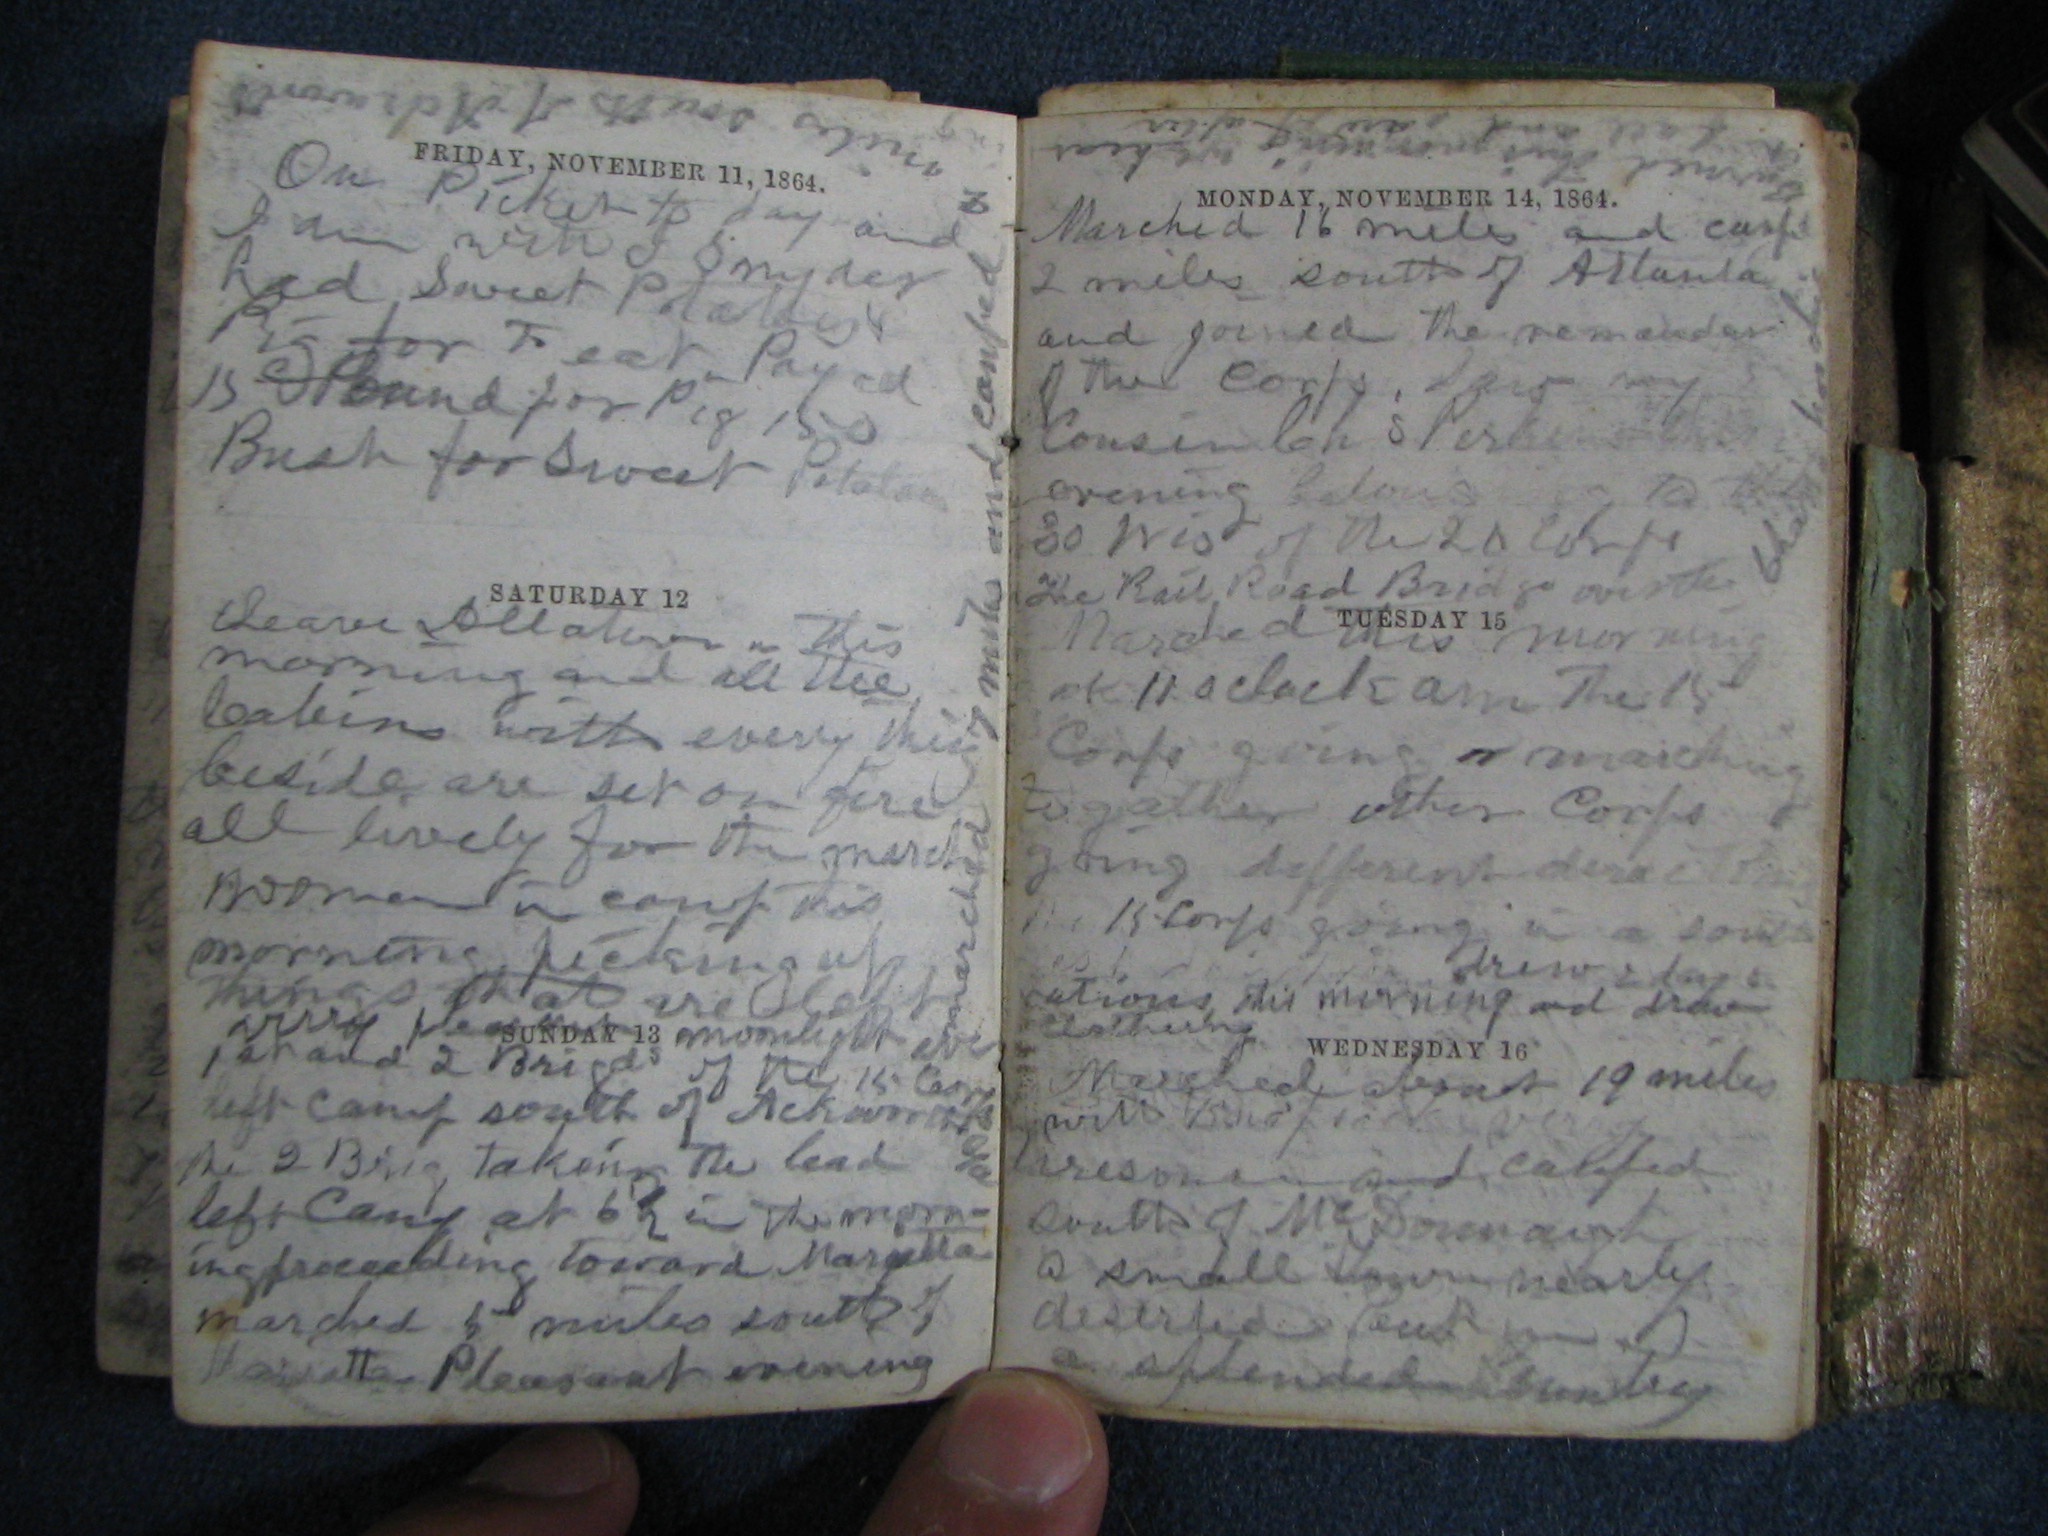 FRIDAY, NOVEMBER 11, 1864.
On Picket to day and
I am with J Snyder
had Sweet Potatoes &
Pig for to eat Payed
15 Pound for Pig 150
Bush for Sweet Potatoes
SATURDAY 12
Leave Allatoona this
morning and all the
Cabins with every thing
beside are set on fire
all lively for the march
Wooman in camp this
morning picking up
things that are left
very pleasant moonlight eve
marched 7 miles and camped 2
miles south of Ackworth
SUNDAY 13
1st and 2 Brigds of the 15 Corps
left camp south of Ackworth
the 2 Brig taking the lead
left Camp at 6½ in the morn-
ing proceeding toward Marietta
marched 5 miles south of
Marietta Pleasant evening
MONDAY, NOVEMBER 14, 1864.
Marched 16 miles and camp
2 miles south of Atlanta
and joined the remander
of the Corps, Saw my
Cousin
evening belonging to the
30 Wis of the 20 Corps
The Rail Road Bridge over the
Chattahoochie
burned this morning
and saw it after
TUESDAY 15
Marched this morning
at 11 oclock am The 15
Corps going or marching
together other Corps
going different directions
the 15 Corps going in a south
drew 2 days
rations this morning and draw
clothing
WEDNESDAY 16
Marched about 19 miles
with Knapsack very
tiresome and camped
south of McDonnaugh
a small town nearly
deserted but in
a splended Country